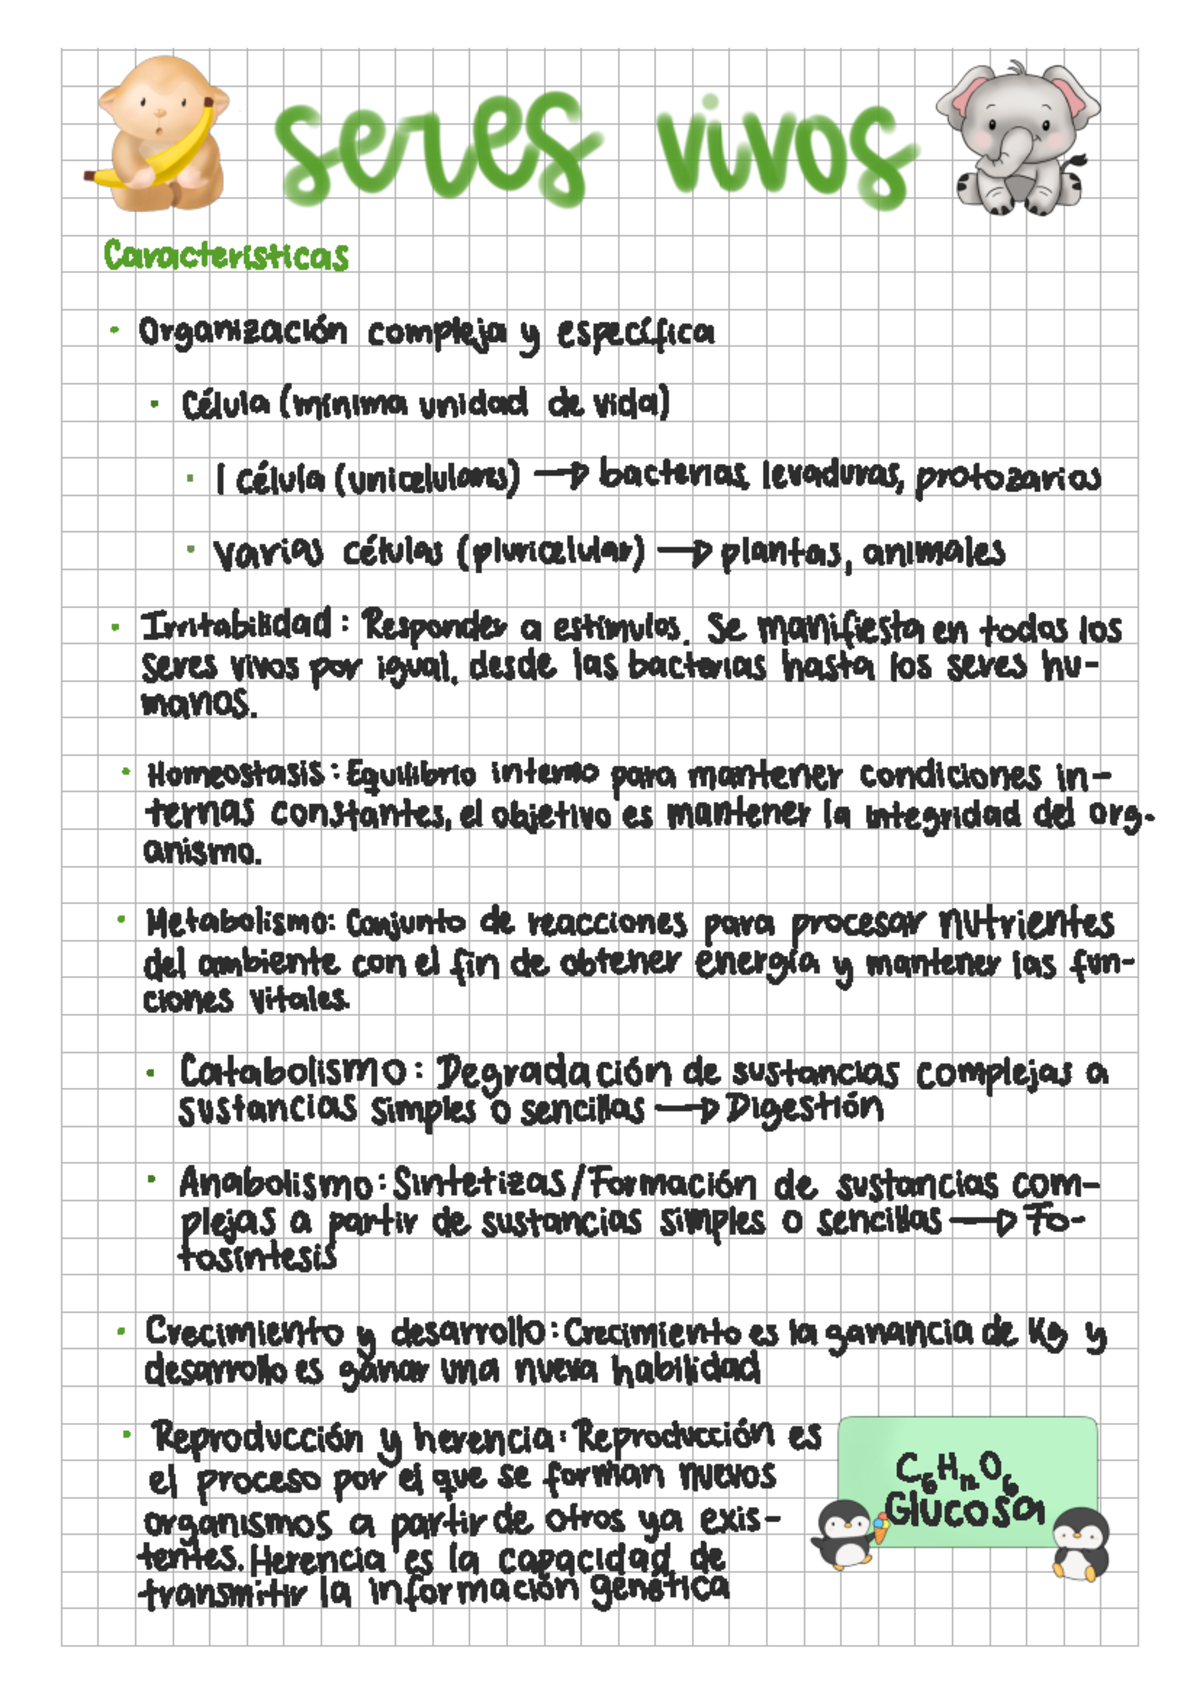 seres vivos
Características
• Organización compleja y específica
• Célula (mínima unidad de vida)
• 1 célula (unicelulares) → bacterias, levaduras, protozarios
• varias células (pluricelular) → plantas, animales
• Irritabilidad: Responder a estímulos. Se manifiesta en todos los
seres vivos por igual, desde las bacterias hasta los seres hu-
manos.
• Homeostasis: Equilibrio interno para mantener condiciones in-
ternas constantes, el objetivo es mantener la integridad del org-
anismo.
• Metabolismo: Conjunto de reacciones para procesar nutrientes
del ambiente con el fin de obtener energía y mantener las fun-
ciones vitales.
• Catabolismo: Degradación de sustancias complejas a
sustancias simples o sencillas → Digestión
• Anabolismo: Sintetizas/Formación de sustancias com-
plejas a partir de sustancias simples o sencillas → Fo-
tosíntesis
• Crecimiento y desarrollo: Crecimiento es la ganancia de Kg y
desarrollo es ganar una nueva habilidad
• Reproducción y herencia: Reproducción es
el proceso por el que se forman nuevos
organismos a partir de otros ya exis-
tentes. Herencia es la capacidad de
transmitir la información genética
C₆H₁₂O₆
Glucosa